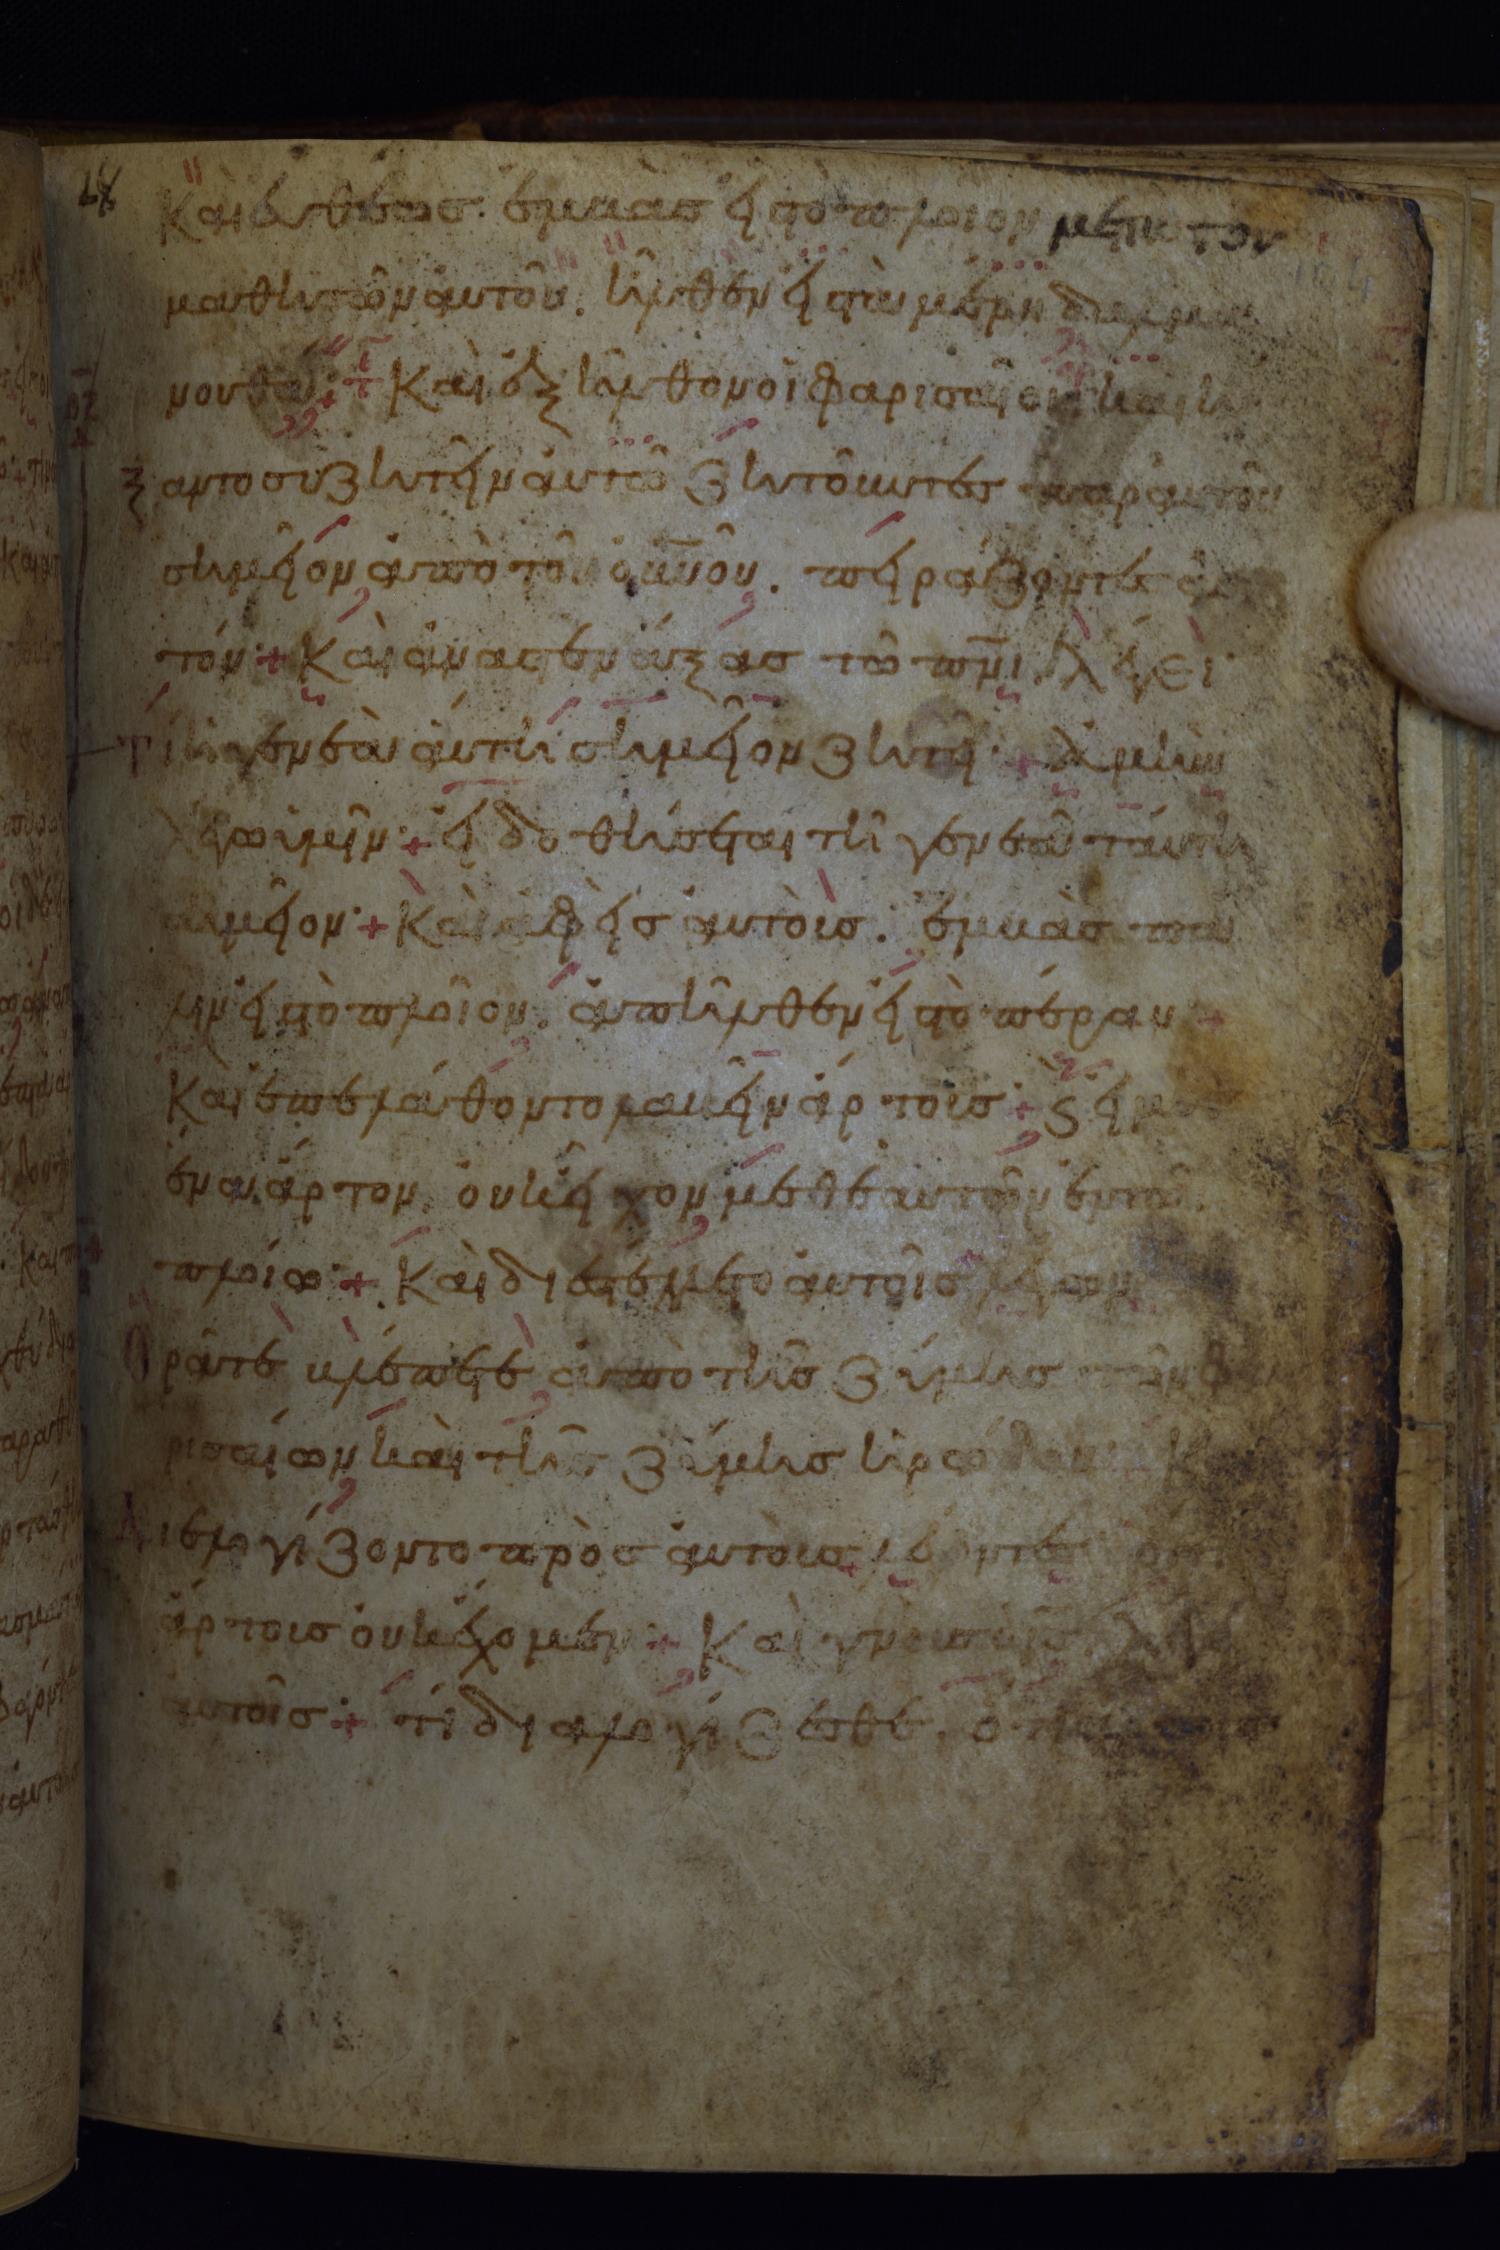 Καὶ ἐυθέως ἐμβὰς εἰς τὸ πλοιον μετὰ τον
μαθητῶν ἀυτοῦ. ἦλθεν εἰς τὰ μέρη δαλμα
νουθά + Καὶ ἐξῆλθον οἱ φαρισαῖοι καὶ ἤρ
ξαντο συζητεῖν ἀυτῶ ζητοῦντες παρ' ἀυτοῦ
σημεῖον ἀπὸ τοῦ ὀυνοῦ. πειράζοντες ἀυ
τόν + Καὶ ἀναστενάξας τῶ πνι λέγει
Τί ἡ γενεὰ ἀυτη σημεῖον ζητεῖ + ἀμὴν
λέγω ὑμῖν + εἰ δοθήσεται τῆ γενεᾶ ταύτη
σημεῖον + Καὶ ἀφεὶς ἀυτοὺς. ἐμβὰς πα
λιν εἰς τὸ πλοῖον. ἀπῆλθεν εἰς τὸ πέραν
Καὶ ἐπελάθοντο λαβεῖν ἄρτους + ϗ εἰ μὴ
ἕνα ἄρτον. ὀυκ εἶχον μεθ ἑαυτῶν ἐν τῶ
πλοίω + Καὶ διεστέλλετο ἀυτοῖς λέγων
Ὁρᾶτε βλέπετε ἀπὸ τῆς ζύμης τῶν φα
ρισαίων καὶ τῆς ζύμης ἡρώδου Κ
Διελογίζοντο πρὸς ἀυτοὺς λέγοντες ὅτι
ἄρτους ὀυκ ἔχομεν + Καὶ γνοὺς ὁ ις λέγει
ἀυτοῖς + τί διαλογίζεσθε. ὅτι ἄρτους